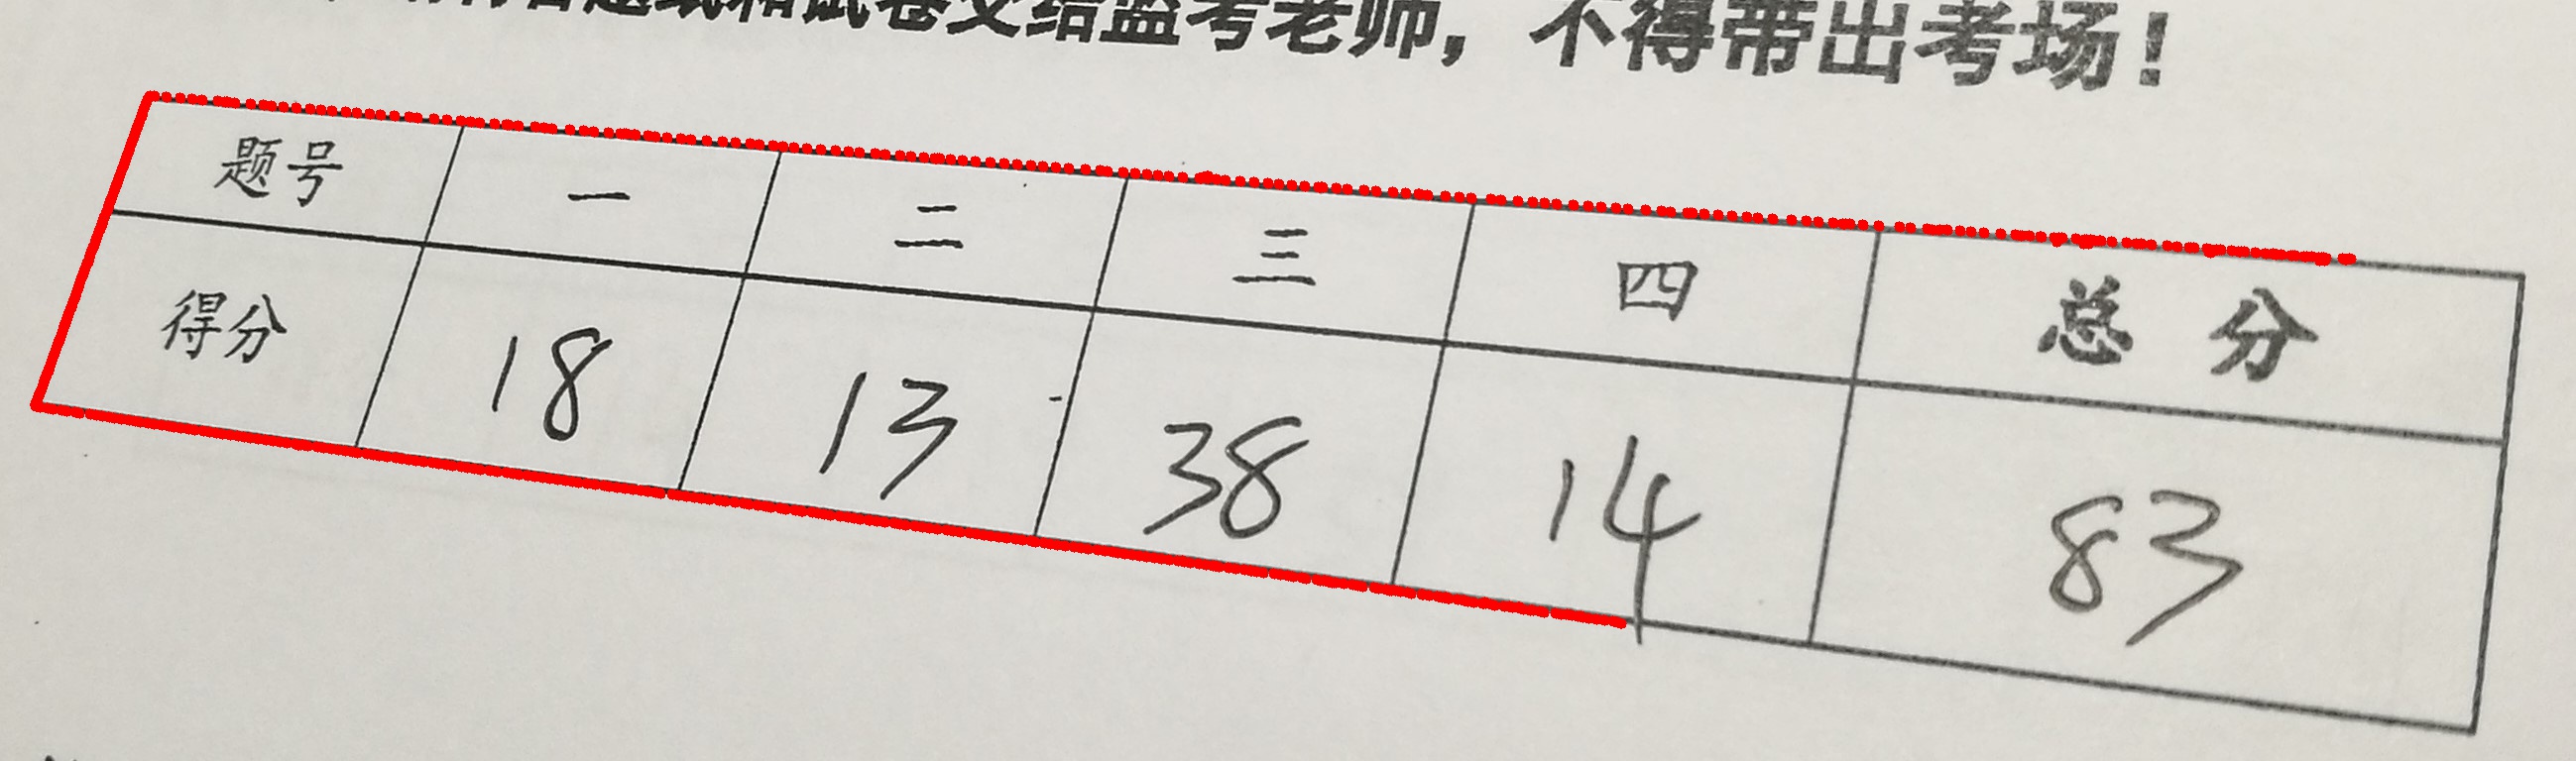 题纸和试卷交给监考老师，不得带出考场！
题号 一 二 三 四 总 分
得分 18 13 38 14 83